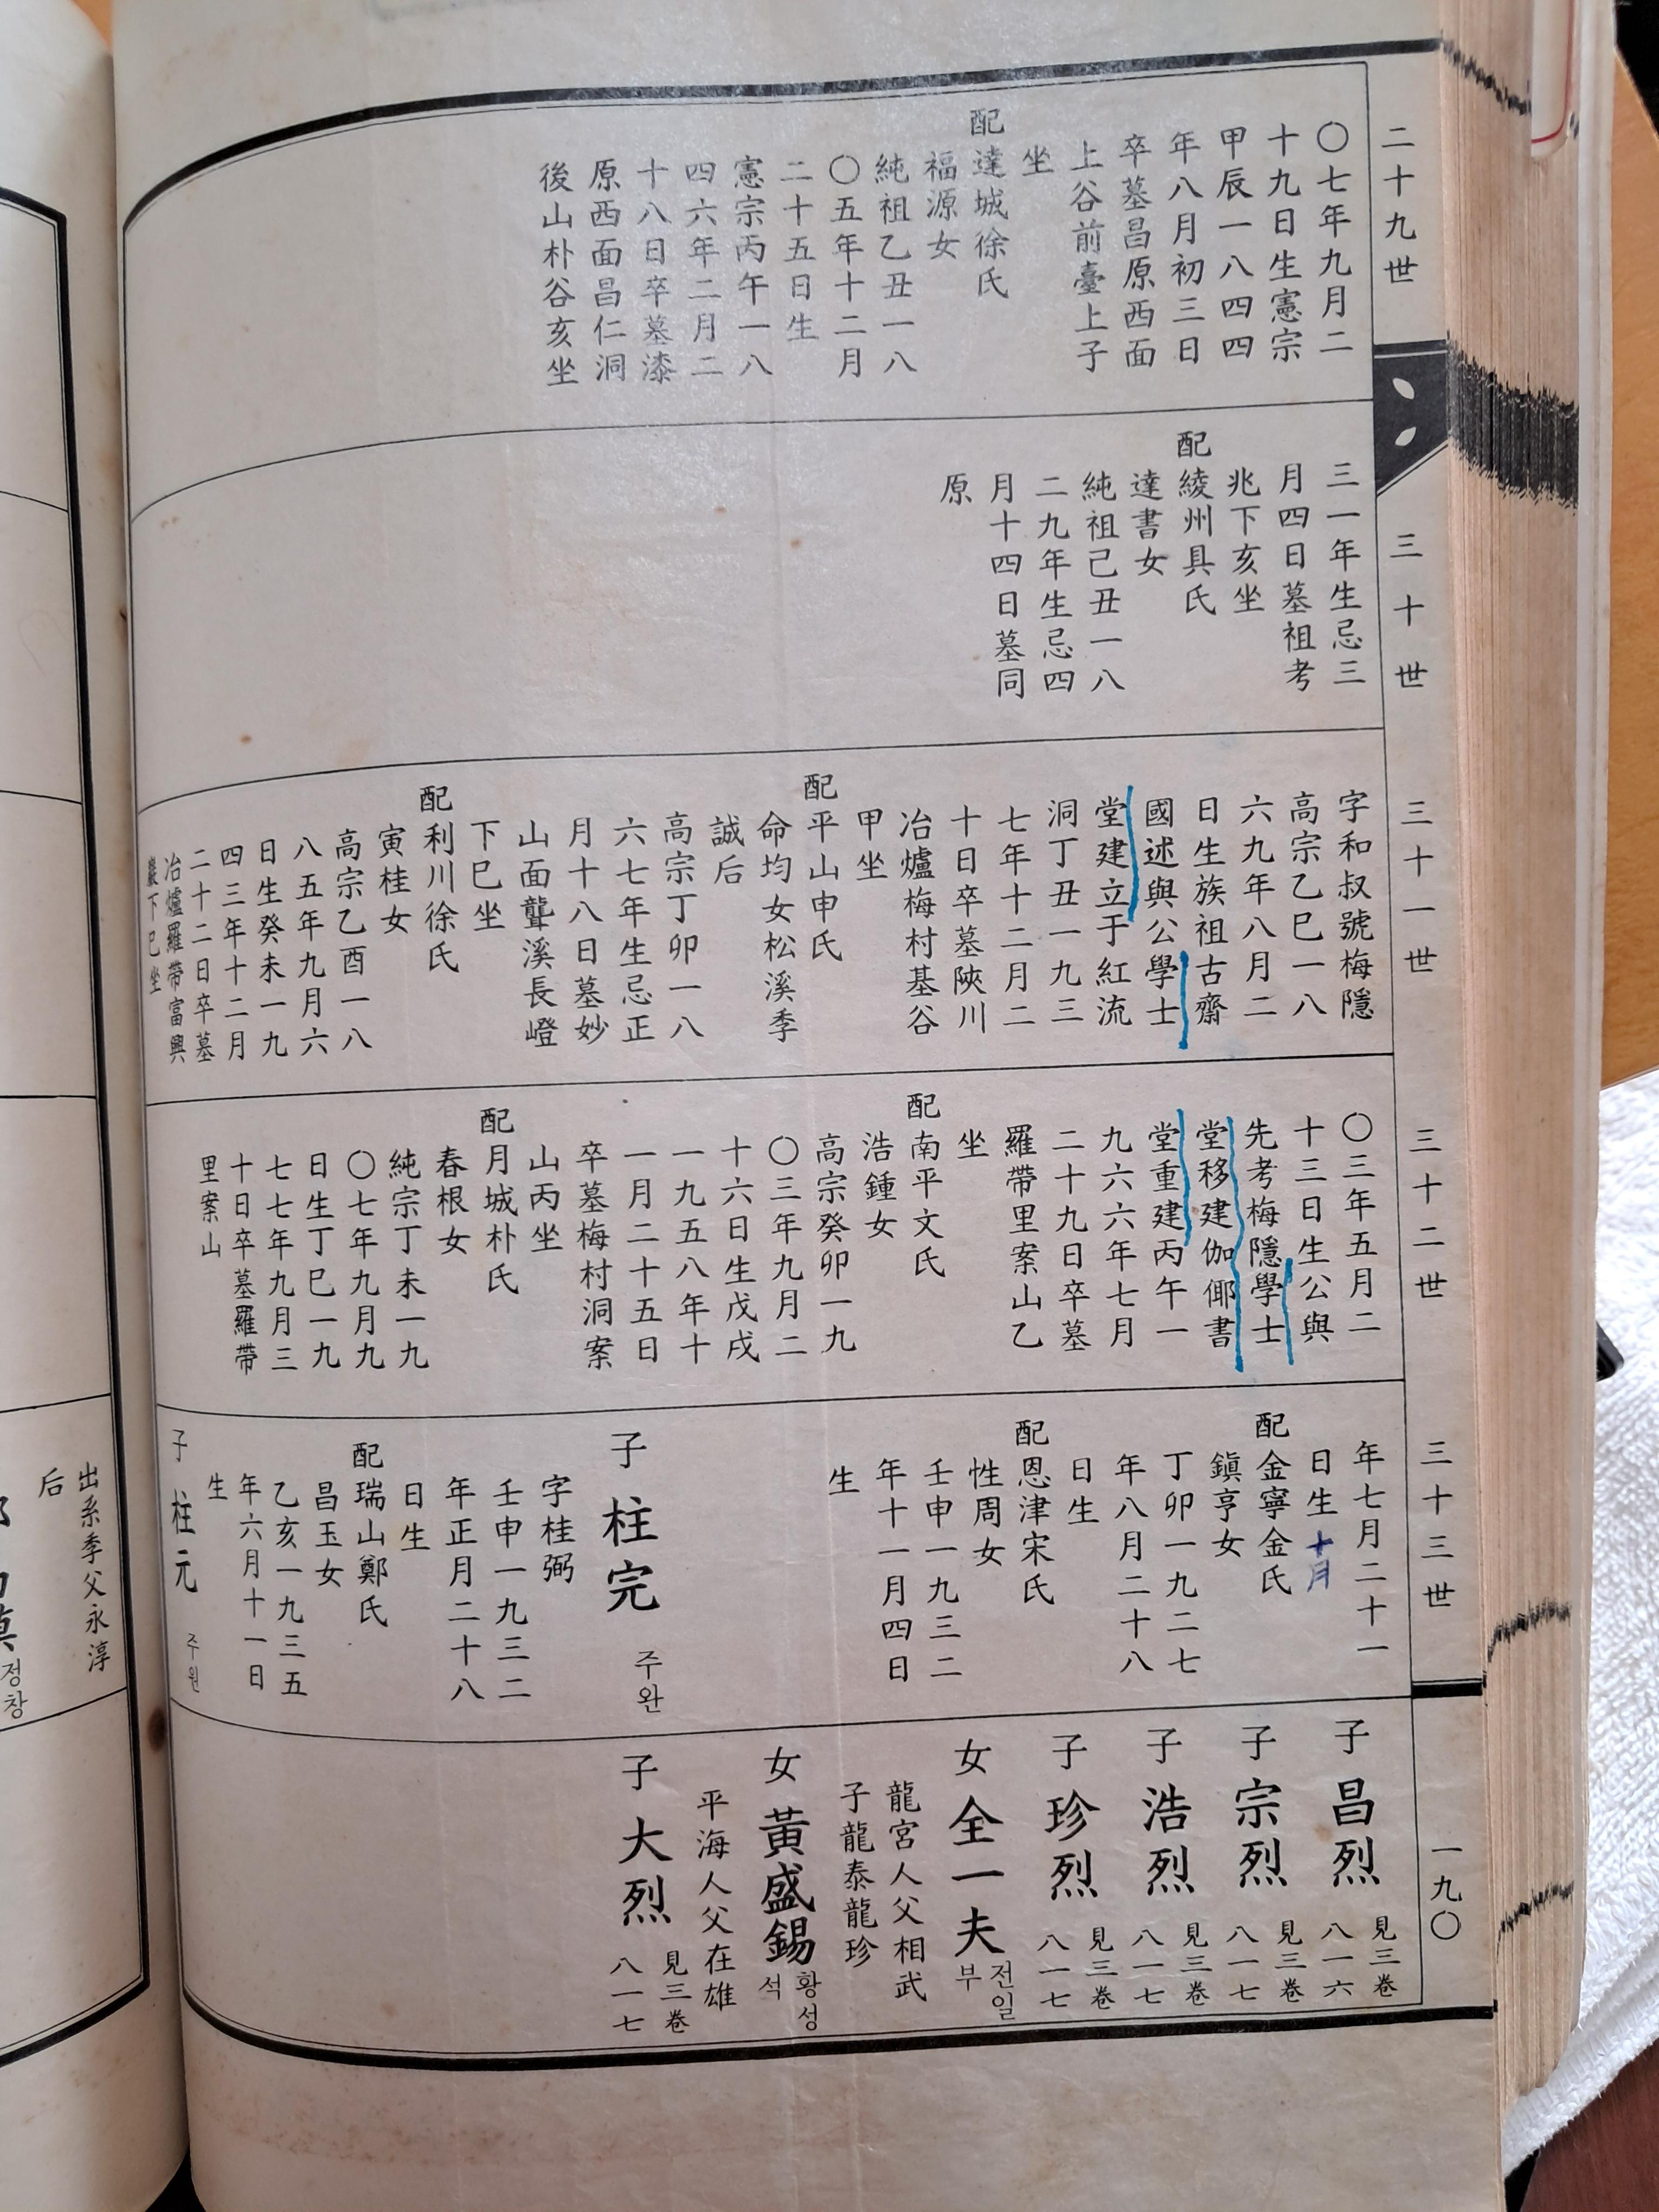 二十九世
〇七年九月二
十九日生憲宗
甲辰一八四四
年八月初三日
卒墓昌原西面
上谷前臺上子
坐
配達城徐氏
福源女
純祖乙丑一八
〇五年十二月
二十五日生
憲宗丙午一八
四六年二月二
十八日卒墓漆
原西面昌仁洞
後山朴谷亥坐
三十世
三一年生忌三
月四日墓祖考
兆下亥坐
配綾州具氏
達書女
純祖己丑一八
二九年生忌四
月十四日墓同
原
三十一世
字和叔號梅隱
高宗乙巳一八
六九年八月二
日生族祖古齋
國述與公學士
堂建立于紅流
洞丁丑一九三
七年十二月二
十日卒墓陜川
冶爐梅村基谷
甲坐
配平山申氏
命均女松溪季
誠后
高宗丁卯一八
六七年生忌正
月十八日墓妙
山面聾溪長嶝
下巳坐
配利川徐氏
寅桂女
高宗乙酉一八
八五年九月六
日生癸未一九
四三年十二月
二十二日卒墓
冶爐羅帶富興
巖下巳坐
三十二世
〇三年五月二
十三日生公與
先考梅隱學士
堂移建伽倻書
堂重建丙午一
九六六年七月
二十九日卒墓
羅帶里案山乙
坐
配南平文氏
浩鍾女
高宗癸卯一九
〇三年九月二
十六日生戊戌
一九五八年十
一月二十五日
卒墓梅村洞案
山丙坐
配月城朴氏
春根女
純宗丁未一九
〇七年九月九
日生丁巳一九
七七年九月三
十日卒墓羅帶
里案山
三十三世
年七月二十一
日生 十月
配金寧金氏
鎭亨女
丁卯一九二七
年八月二十八
日生
配恩津宋氏
性周女
壬申一九三二
年十一月四日
生
子 柱完 주완
字桂弼
壬申一九三二
年正月二十八
日生
配瑞山鄭氏
昌玉女
乙亥一九三五
年六月十一日
生
子 柱元 주원
一九〇
子 昌烈 見三卷
八一六
子 宗烈 見三卷
八一七
子 浩烈 見三卷
八一七
子 珍烈 見三卷
八一七
女 全一夫 전일
부
龍宮人父相武
子龍泰龍珍
女 黃盛錫 황성
석
平海人父在雄
子 大烈 見三卷
八一七
出系季父永淳
后
정창